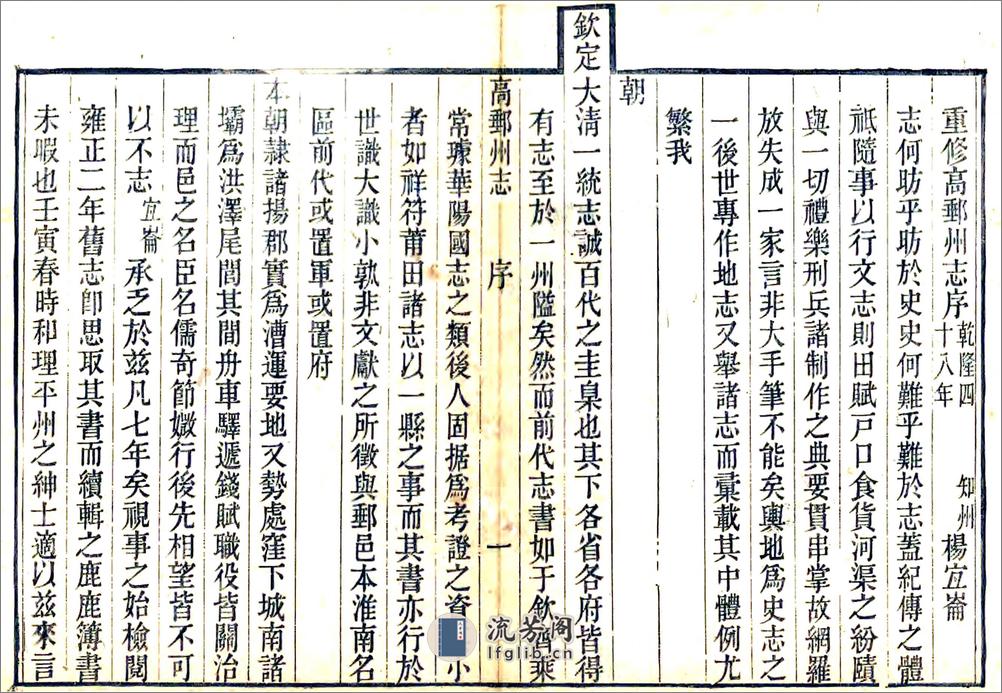 重修高郵州志序 乾隆四十八年 知州 楊宜崙
志何昉乎昉於史史何難乎難於志蓋紀傳之體
祗隨事以行文志則田賦戶口食貨河渠之紛賾
與一切禮樂刑兵諸制作之典要貫串掌故網羅
放失成一家言非大手筆不能矣輿地為史志之
一後世專作地志又舉諸志而彚載其中體例尤
繁我
朝
欽定大清一統志誠百代之圭臬也其下各省各府皆得
有志至於一州隘矣然而前代志書如于欽齊乘
高郵州志 序 一
常璩華陽國志之類後人固据為考證之資
小
者如祥符莆田諸志以一縣之事而其書亦行於
世識大識小孰非文獻之所徵與郵邑本淮南名
區前代或置軍或置府
本朝隷諸揚郡實為漕運要地又勢處窪下城南諸
壩為洪澤尾閭其間舟車驛遞錢賦職役皆關治
理而邑之名臣名儒奇節媺行後先相望皆不可
以不志宜崙承乏於兹凡七年矣視事之始檢閱
雍正二年舊志卽思取其書而續輯之鹿鹿簿書
未暇也壬寅春時和理平州之紳士適以兹來言
流芳阁
lfglib.cn